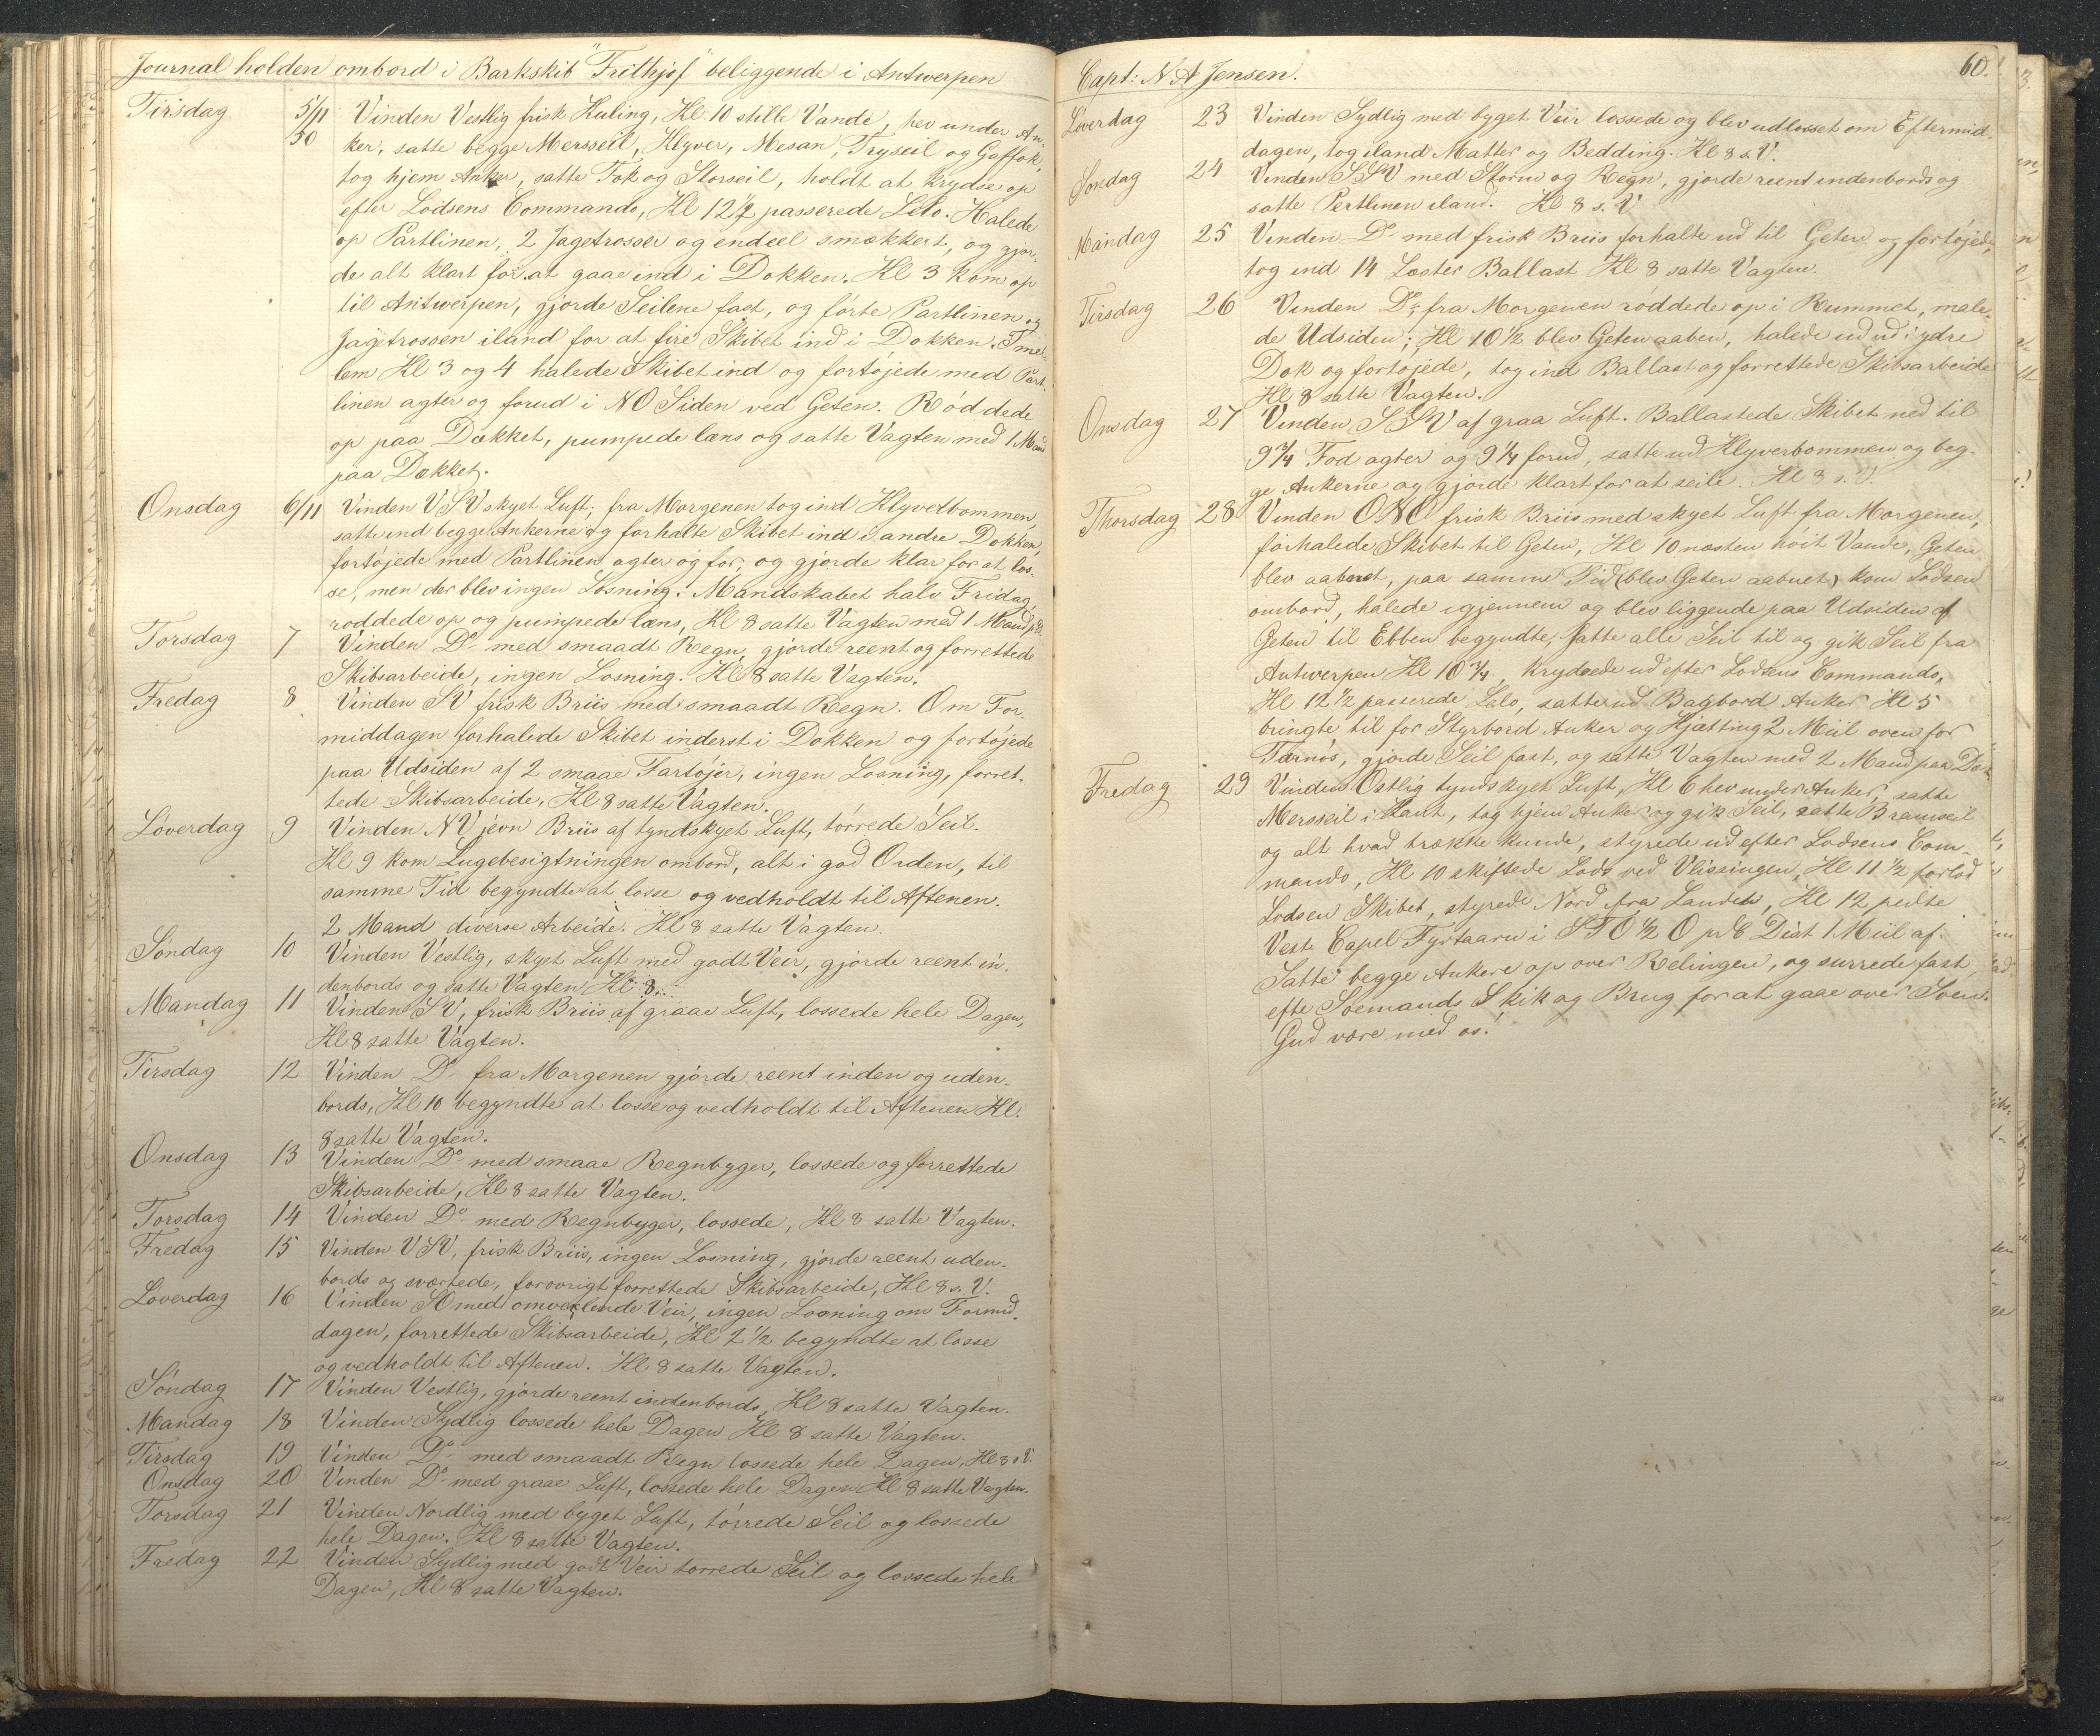 Journal holden ombord i Barkskib "Frithjof" beliggende i Antwerpen
Tirsdag 5/11 50 Vinden Vestlig frisk Kuling, Kl 10 stille Vande, hev under An-
ker, satte begge Mersseil, Klyver, Mesan, Tryseil og Gaffok,
tog hjem Anker, satte Fok og Storseil, holdt at krydse op
efter Lodsens Commando, Kl 12½ passerede Lilo. Halede
op Partlinen, 2 Jagetrosser og endeel smækkert, og gjor-
de alt klart for at gaae ind i Dokken. Kl 3 kom op
til Antwerpen, gjorde Seilene fast, og førte Partlinen og
Jagetrossen iland for at fire Skibet ind i Dokken. Imel-
lem Kl 3 og 4 halede Skibet ind og fortøjede med Part-
linen agter og forud i NO Siden ved Geten. Røddede
op paa Dækket, pumpede læns og satte Vagten med 1 Mand
paa Dækket.
Onsdag 6/11 Vinden VSV skyet Luft, fra Morgenen tog ind Klyverbommen,
satte ind begge Ankerne og forhalte Skibet ind i andre Dokken,
fortøjede med Partlinen agter og for, og gjorde klar for at los-
se, men der blev ingen Losning. Mandskabet halv Fridag,
røddede op og pumpede læns, Kl 8 satte Vagten med 1 Mand p D.
Torsdag 7 Vinden Do med smaadt Regn, gjorde reent og forrettede
Skibsarbeide, ingen Losning. Kl 8 satte Vagten.
Fredag 8 Vinden SV frisk Briis med smaadt Regn. Om For-
middagen forhalede Skibet inderst i Dokken og fortøjede
paa Udsiden af 2 smaae Fartøjer, ingen Losning, forret-
tede Skibsarbeide, Kl 8 satte Vagten.
Løverdag 9 Vinden NV jevn Briis af tyndskyet Luft, tørrede Seil.
Kl 9 kom Lugebesigtningen ombord, alt i god Orden, til
samme Tid begyndte at losse og vedholdt til Aftenen.
2 Mand diverse Arbeide. Kl 8 satte Vagten.
Søndag 10 Vinden Vestlig, skyet Luft med godt Veir, gjorde reent in-
denbords og satte Vagten Kl 8.
Mandag 11 Vinden SV, frisk Briis af graae Luft, lossede hele Dagen,
Kl 8 satte Vagten.
Tirsdag 12 Vinden Do fra Morgenen gjorde reent inden og uden-
bords, Kl 10 begyndte at losse og vedholdt til Aftenen Kl.
8 satte Vagten.
Onsdag 13 Vinden Do med smaae Regnbyger, lossede og forrettede
Skibsarbeide, Kl 8 satte Vagten.
Torsdag 14 Vinden Do med Regnbyger, lossede, Kl 8 satte Vagten.
Fredag 15 Vinden VSV, frisk Briis, ingen Losning, gjorde reent uden-
bords og sværtede, forøvrigt forrettede Skibsarbeide, Kl 8 s. V.
Løverdag 16 Vinden SO med omvexlende Veir, ingen Losning om Formid-
dagen, forrettede Skibsarbeide, Kl 2½ begyndte at losse
og vedholdt til Aftenen. Kl 8 satte Vagten.
Søndag 17 Vinden Vestlig, gjorde reent indenbords, Kl 8 satte Vagten.
Mandag 18 Vinden Sydlig lossede hele Dagen Kl 8 satte Vagten.
Tirsdag 19 Vinden Do med smaadt Regn lossede hele Dagen, Kl 8 s. V.
Onsdag 20 Vinden Do med graae Luft, lossede hele Dagen Kl 8 satte Vagten.
Torsdag 21 Vinden Nordlig med byget Luft, tørrede Seil og lossede
hele Dagen. Kl 8 satte Vagten.
Fredag 22 Vinden Sydlig med godt Veir tørrede Seil og lossede hele
Dagen, Kl 8 satte Vagten.
Capt: N A Jensen. 60.
Løverdag 23 Vinden Sydlig med byget Veir lossede og blev udlosset om Eftermid-
dagen, tog iland Matter og Bedding. Kl 8 s. V.
Søndag 24 Vinden SSV med Storm og Regn, gjorde reent indenbords og
satte Pertlinen iland. Kl 8 s. V
Mandag 25 Vinden Do med frisk Briis forhalte ud til Geten og fortøjede,
tog ind 14 Læster Ballast Kl 8 satte Vagten.
Tirsdag 26 Vinden Do, fra Morgenen røddede op i Rummet, male-
de Udsiden; Kl 10½ blev Geten aaben, halede ud ud i ydre
Dok og fortøjede, tog ind Ballast og forrettede Skibsarbeide
Kl 8 satte Vagten.
Onsdag 27 Vinden SSV af graa Luft. Ballastede Skibet ned til
9¾ Fod agter og 9¼ forud, satte ud Klyverbommen og beg-
ge Ankerne og gjorde klart for at seile. Kl 8 s. V.
Thorsdag 28 Vinden ONO frisk Briis med skyet Luft fra Morgenen,
forhalede Skibet til Geten, Kl 10 næsten høit Vande, Geten
blev aabnet, paa samme Tid (blev Geten aabnet) kom Lodsen
ombord, halede igjennem og blev liggende paa Udsiden af
Geten til Ebben begyndte, satte alle Seil til og gik Seil fra
Antwerpen Kl 10¾, krydsede ud efter Lodsens Commando,
Kl 12½ passerede Lilo, satte ud Bagbord Anker Kl 5
bringte til for Styrbord Anker og Kjætting 2 Miil oven for
Tærnøs, gjorde Seil fast, og satte Vagten med 2 Mand paa Dæk
Fredag 29 Vinden Ostlig tyndskyet Luft, Kl 6 hev under Anker, satte
Mersseil i Kant, tog hjem Anker og gik Seil, satte Bramseil
og alt hvad trække kunde, styrede ud efter Lodsens Com-
mando, Kl 10 skiftede Lods ved Vlissingen, Kl 11½ forlod
Lodsen Skibet, styrede Nord fra Landet, Kl 12 peilte
Vest Capel Fyrtaarn i STO½O pr C Dist 1 Miil af.
Satte begge Ankere op over Relingen, og surrede fast
efte Soemands Skik og Brug for at gaae over Soen.
Gud være med os!